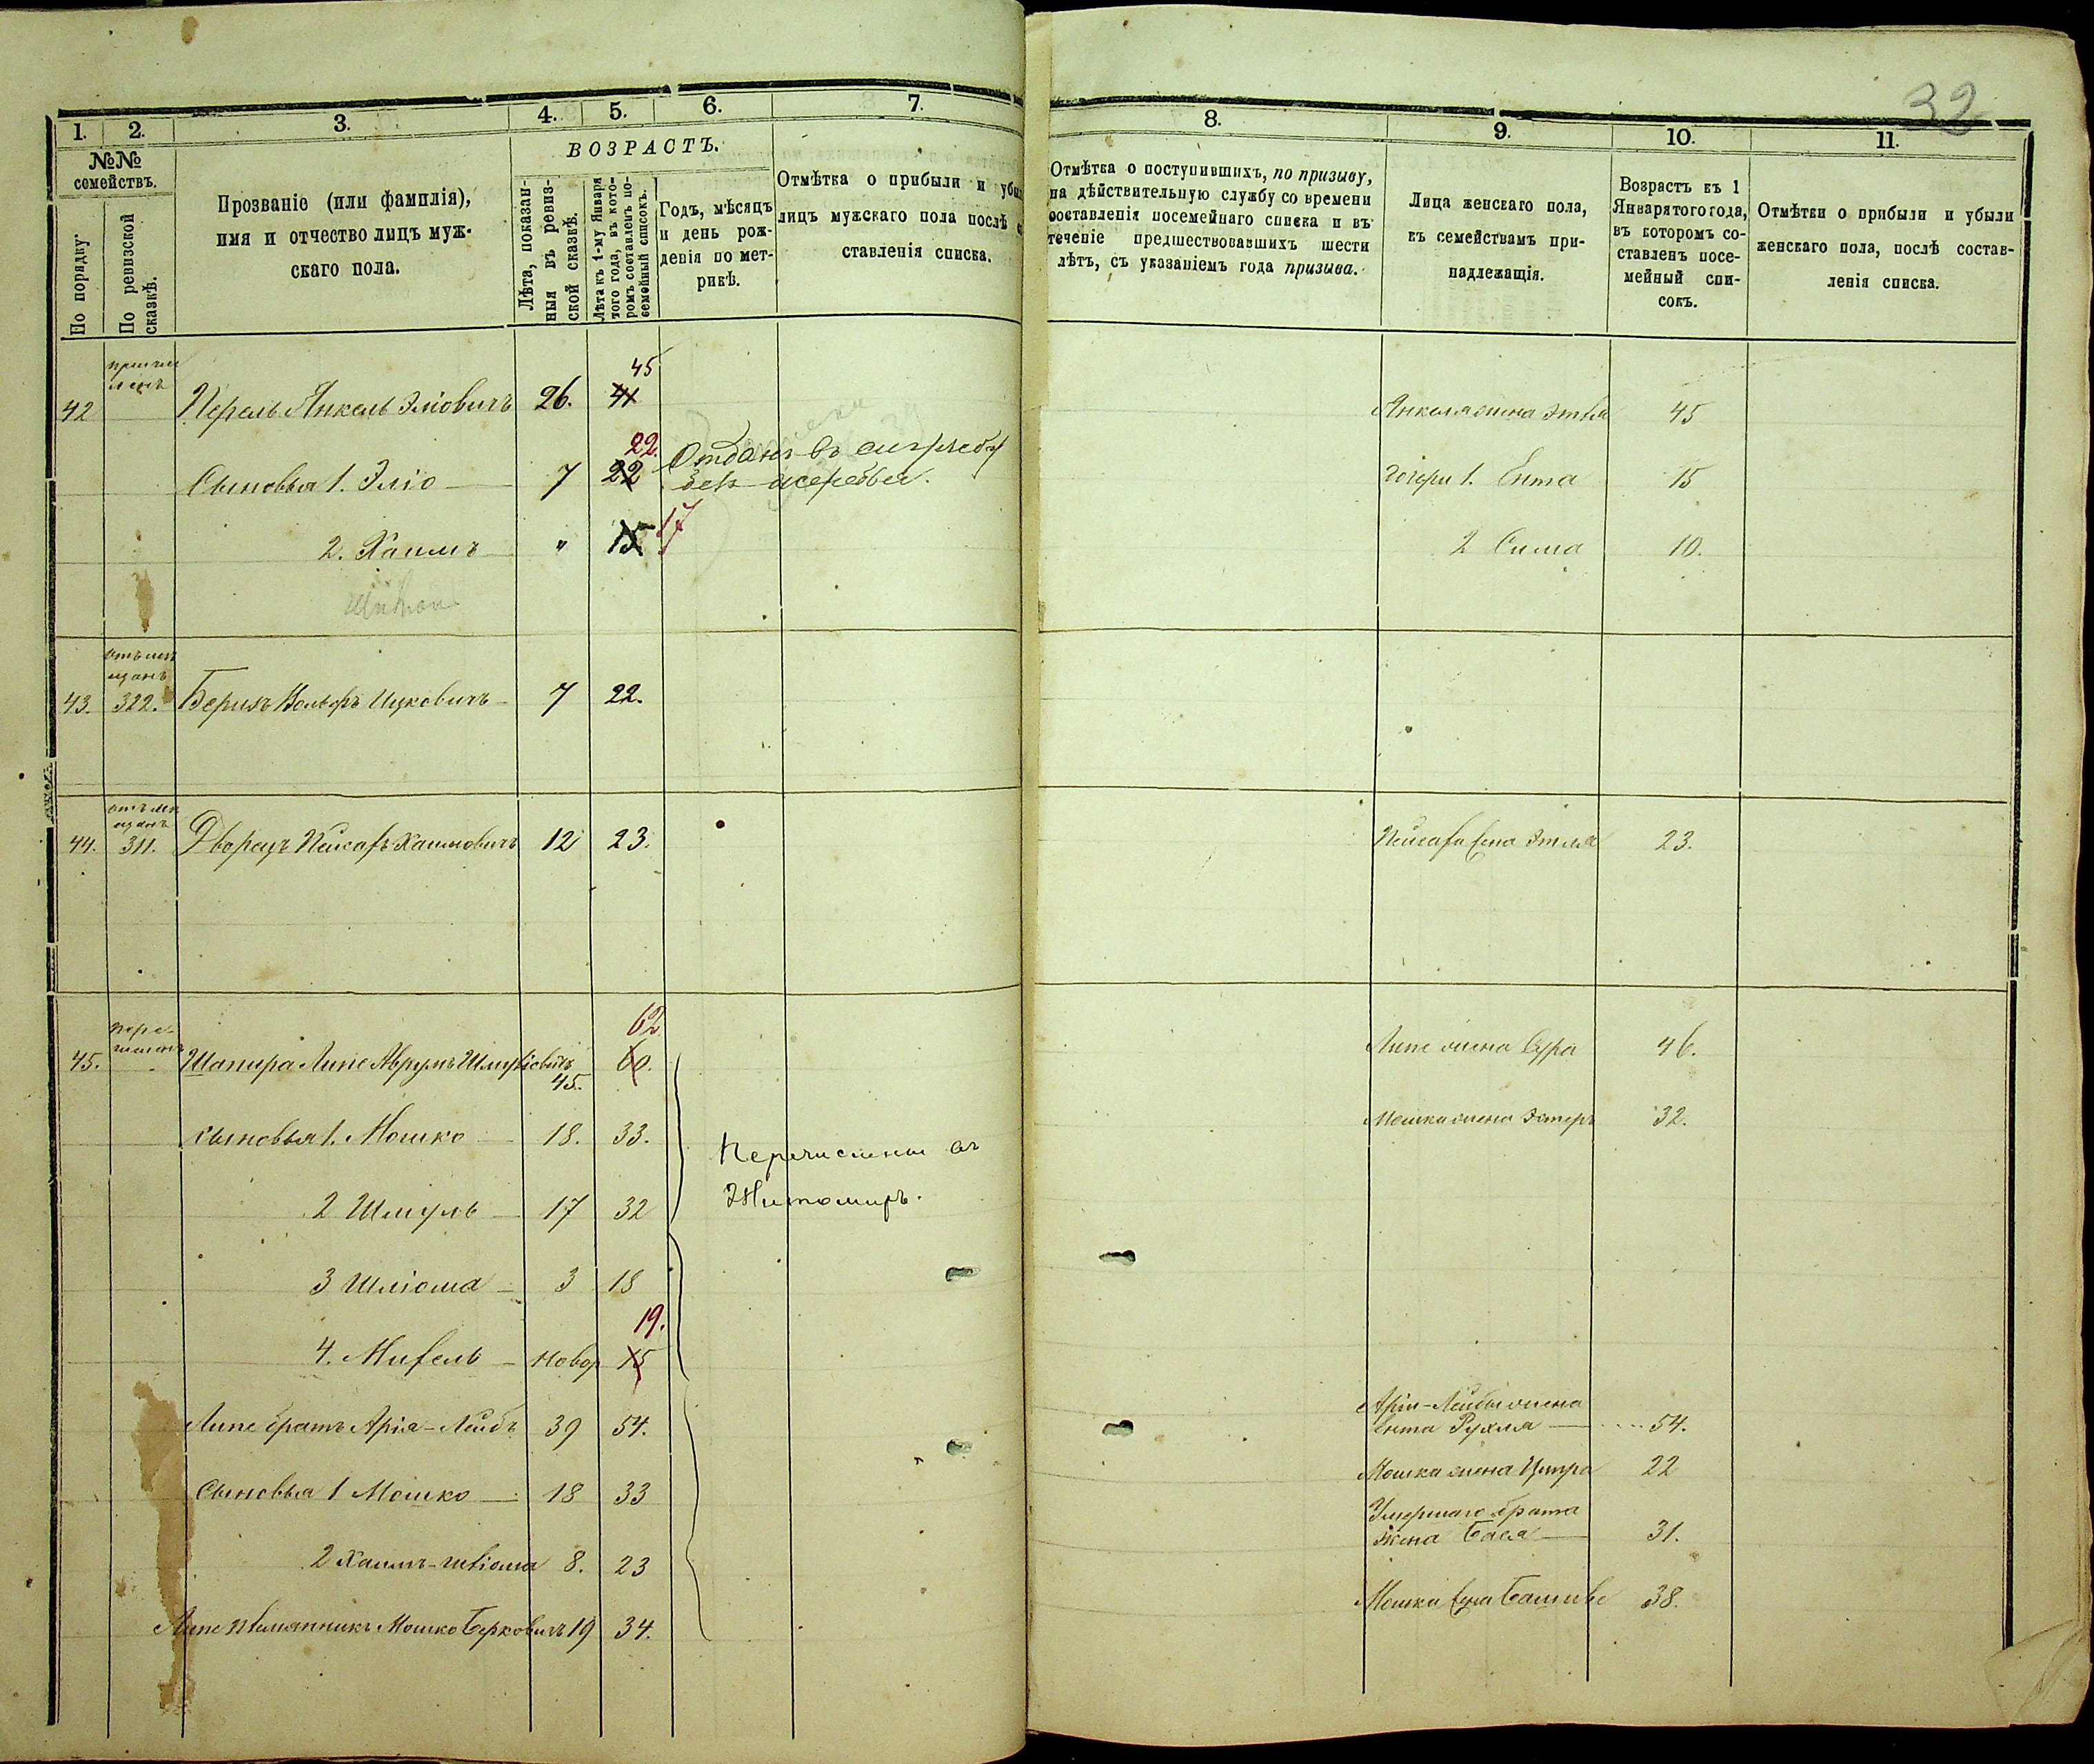 32
1. 2. 3. 4. 5. 6. 7.
№№ семействъ.
По порядку.
По ревизской сказкѣ.
Прозваніе (или фамилія),
имя и отчество лицъ муж-
скаго пола.
ВОЗРАСТЪ.
Лѣта, показан-
ныя въ ревиз-
ской сказкѣ.
Лѣта къ 1-му Января
того года, въ кото-
ромъ составленъ по-
семейный списокъ.
Годъ, мѣсяцъ
и день рож-
денія по мет-
рикѣ.
Отмѣтка о прибыли и убы
лицъ мужскаго пола послѣ
ставленія списка.
8. 9. 10. 11.
Отмѣтка о поступившихъ, по призыву,
на дѣйствительную службу со времени
составленія посемейнаго списка и въ
теченіе предшествовавшихъ шести
лѣтъ, съ указаніемъ года призыва.
Лица женскаго пола,
къ семействамъ при-
надлежащія.
Возрастъ къ 1
Января того года,
въ которомъ со-
ставленъ посе-
мейный спи-
сокъ.
Отмѣтки о прибыли и убыли
женскаго пола, послѣ состав-
ленія списка.
45
42 Перель Янкель Эліовичъ 26. 41
22.
Сыновья 1. Эліо 7 22 Отданъ въ
17
2. Хаимъ " 15
43. 322. Берихъ Вольфъ Ицковичъ 7 22.
44. 311. Дворецъ Пейсахъ Хаимовичъ 12 23.
62
45. Шапира Липе Аврумъ Шмуліовичъ 45. 60.
сыновья 1. Мошко 18. 33.
2 Шмуль 17 32
3 Шліома 3 18
19.
4. Михель новор 15
Перечислены въ
Житомиръ.
Липе братъ Арія-Лейбъ 39 54.
Сыновья 1 Мошко 18 33
2 Хаимъ-Шліома 8. 23
Липе племянникъ Мошко Берковичъ 19 34.
Янкеля жена Этля 45
дочери 1. Ента 15
2 Сима 10.
Пейсаха жена Этля 23.
Липе жена Сура 46.
Мошка жена Эстеръ 32.
Аріи-Лейбы жена
Ента Рухля 54.
Мошка жена 22
Умершаго брата
жена Бася 31.
Мошка жена Башиве 38.